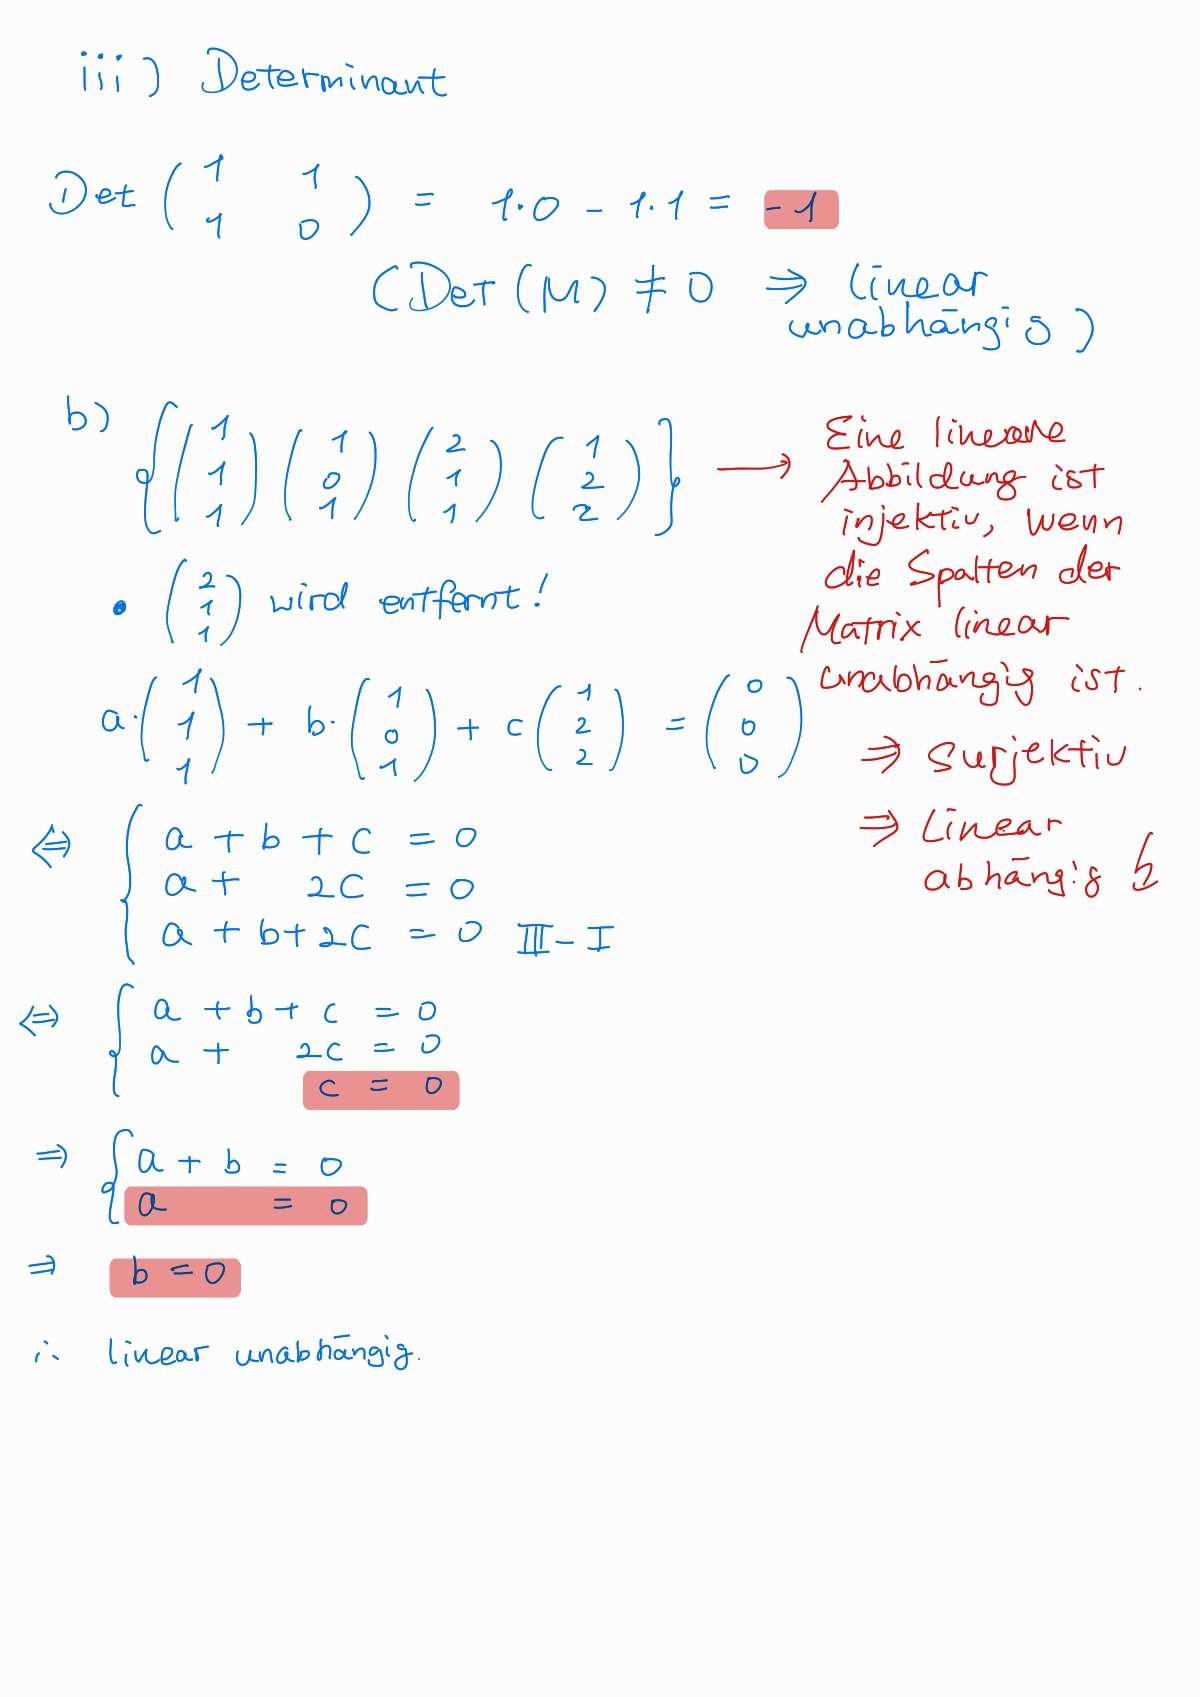 iii) Determinant
Det ( 1 1 ; 1 0 ) = 1·0 - 1·1 = -1
(Det (M) ≠ 0 ⇒ linear
unabhängig)
b) { ( 1 1 1 ) ( 1 0 1 ) ( 2 1 1 ) ( 1 2 2 ) } →
Eine lineare
Abbildung ist
injektiv, wenn
die Spalten der
Matrix linear
unabhängig ist.
⇒ Surjektiv
⇒ Linear
abhängig ↯
• ( 2 1 1 ) wird entfernt!
a· ( 1 1 1 ) + b· ( 1 0 1 ) + c ( 1 2 2 ) = ( 0 0 0 )
⇔ { a + b + c = 0
a + 2c = 0
a + b + 2c = 0 III - I
⇔ { a + b + c = 0
a + 2c = 0
c = 0
⇒ { a + b = 0
a = 0
⇒ b = 0
∴ linear unabhängig.